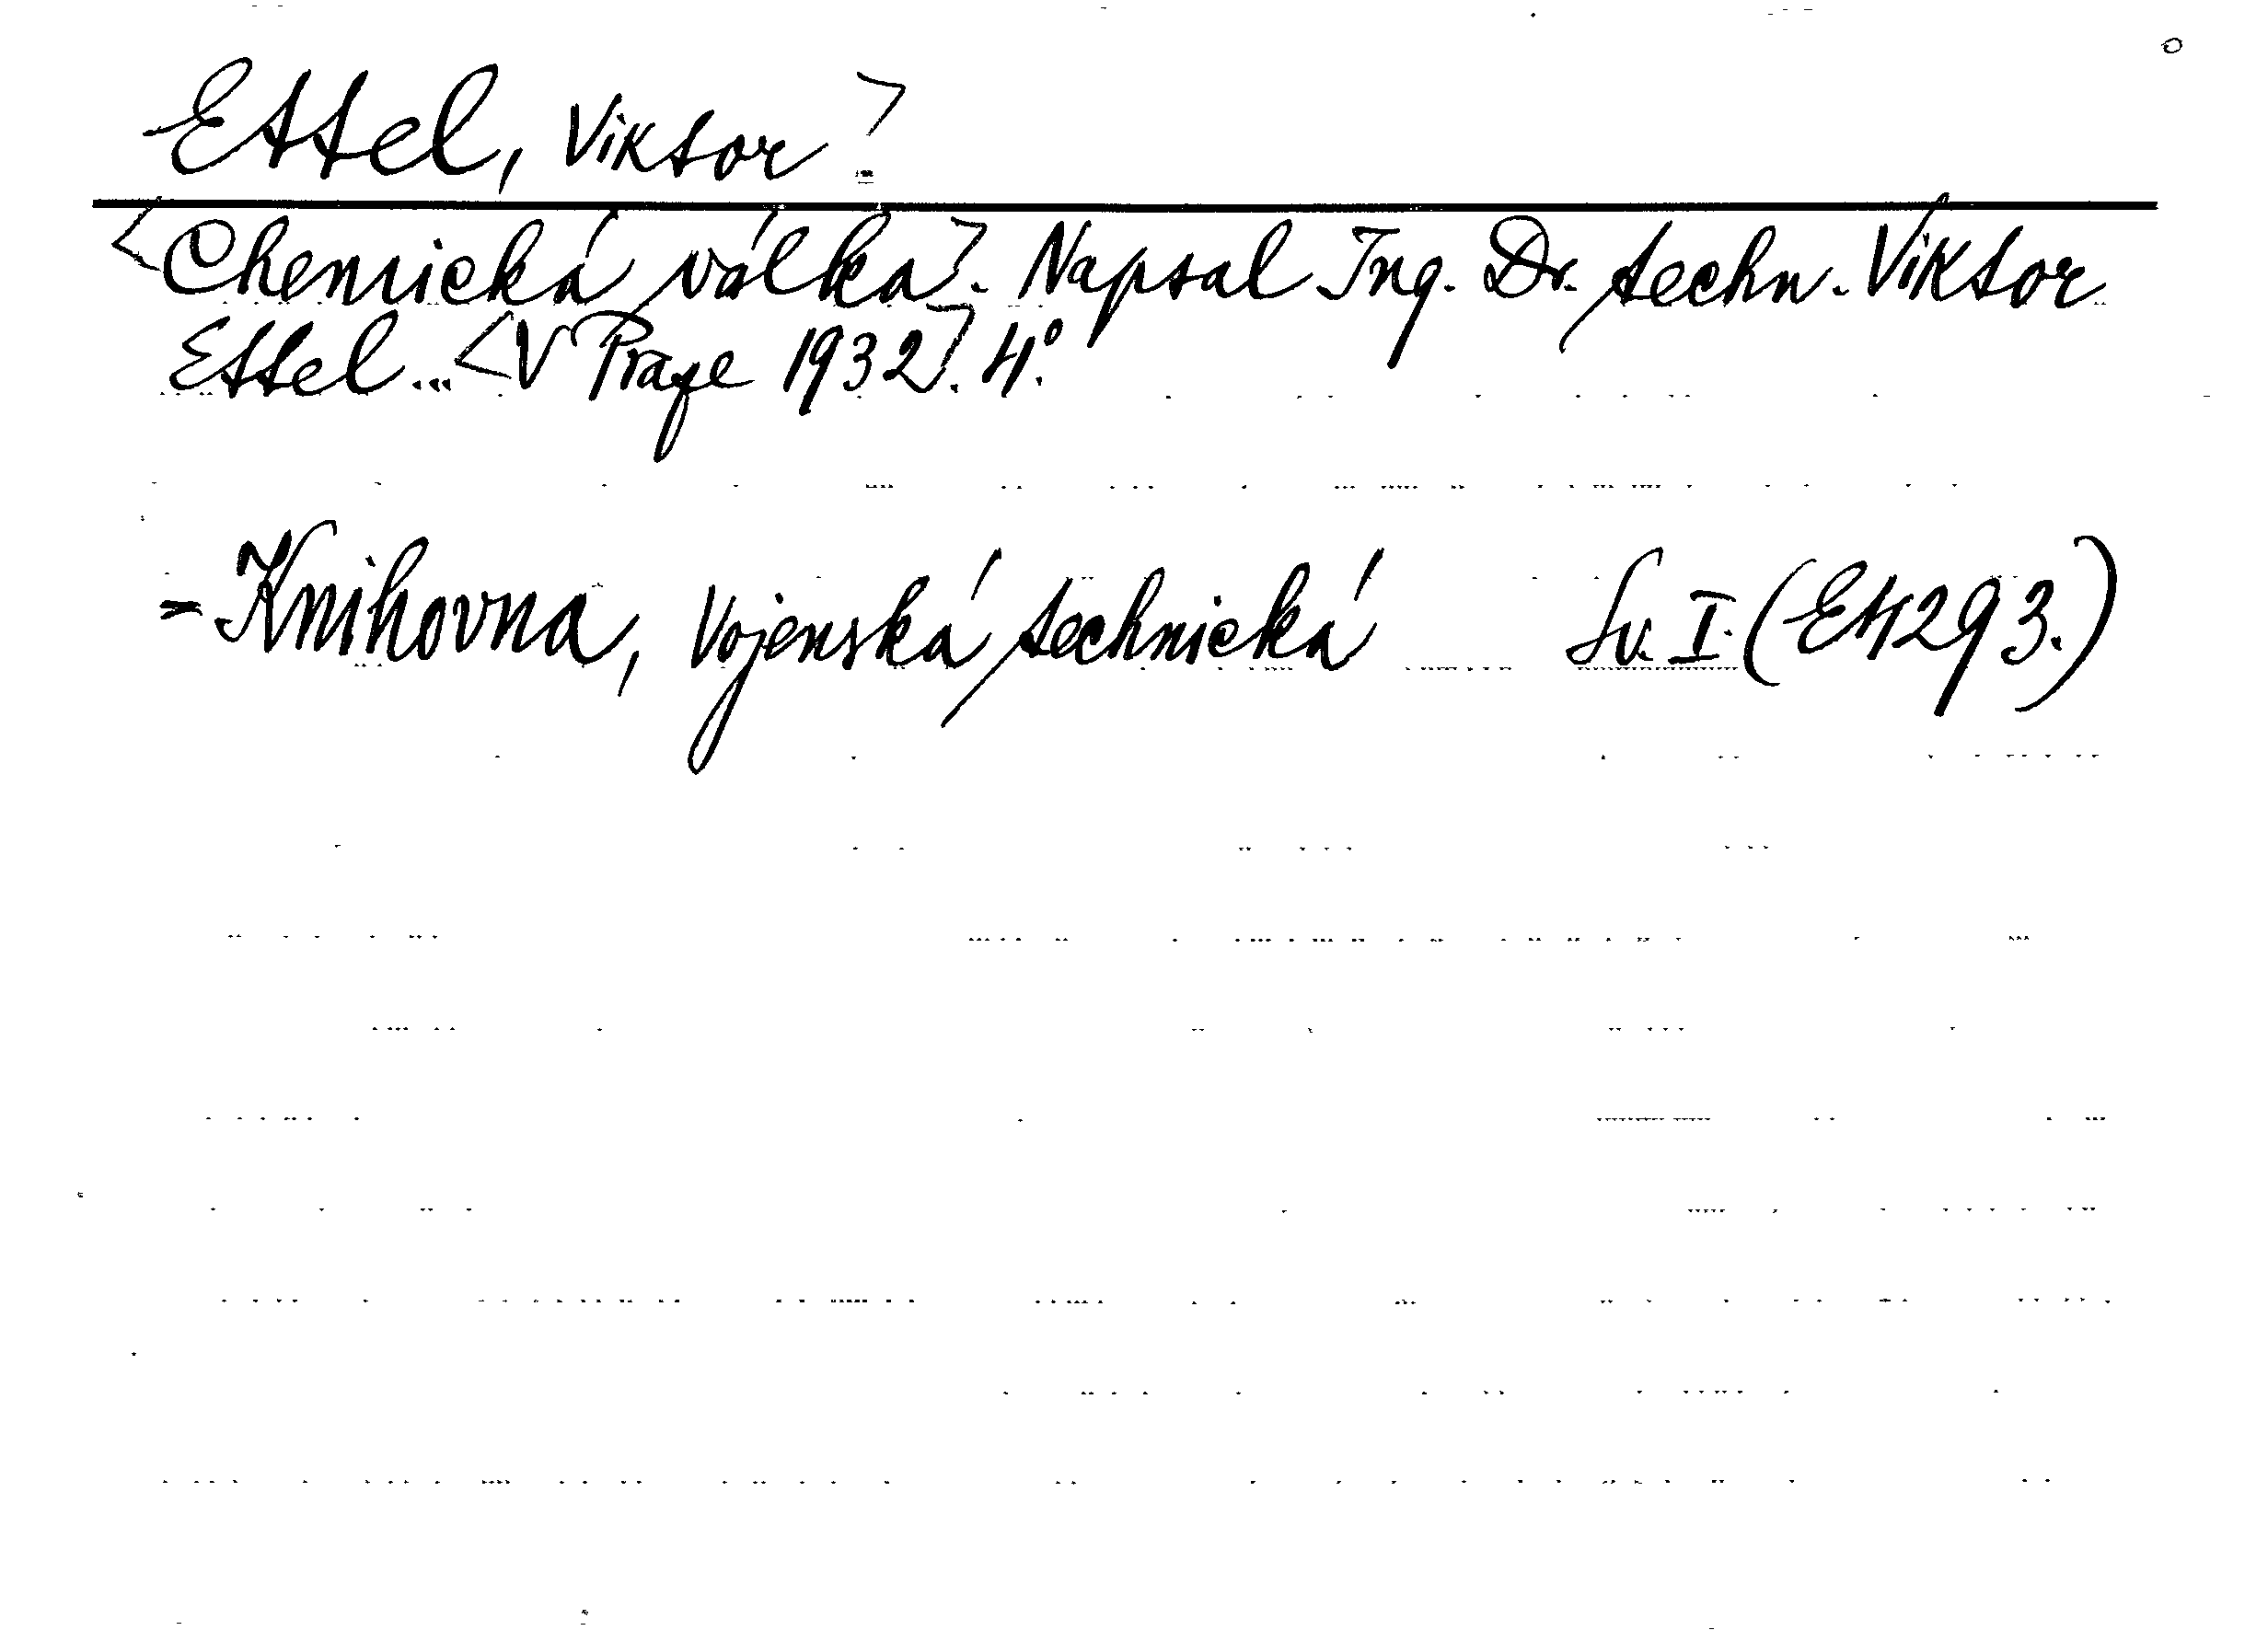 Ettel, Viktor ⟩
⟨Chemická válka⟩. Napsal Ing. Dr. techn. Viktor
Ettel ... ⟨V Praze 1932⟩. 4°.
= Knihovna, Vojenská technická Sv. I. (E4293.)